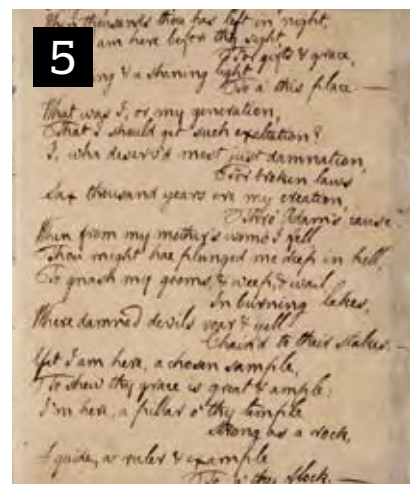 5
thousands thou has left in night,
am here before thy sight,
For gifts & grace,
ng & a shining light
To a' this place —
What was I, or my generation,
That I should get such exaltation?
I, wha deserv'd most just damnation,
For broken laws
Sax thousand years ere my creation,
Thro' Adam's cause
When from my mother's womb I fell,
Thou might hae plunged me deep in hell,
To gnash my gooms, & weep, & wail,
In burning lakes,
Where damned devils roar & yell
Chain'd to their stakes. —
Yet I am here, a chosen sample,
To shew thy grace is great & ample:
I'm here, a pillar o' thy temple
Strong as a rock,
A guide, a ruler & example
To a' thy flock. —